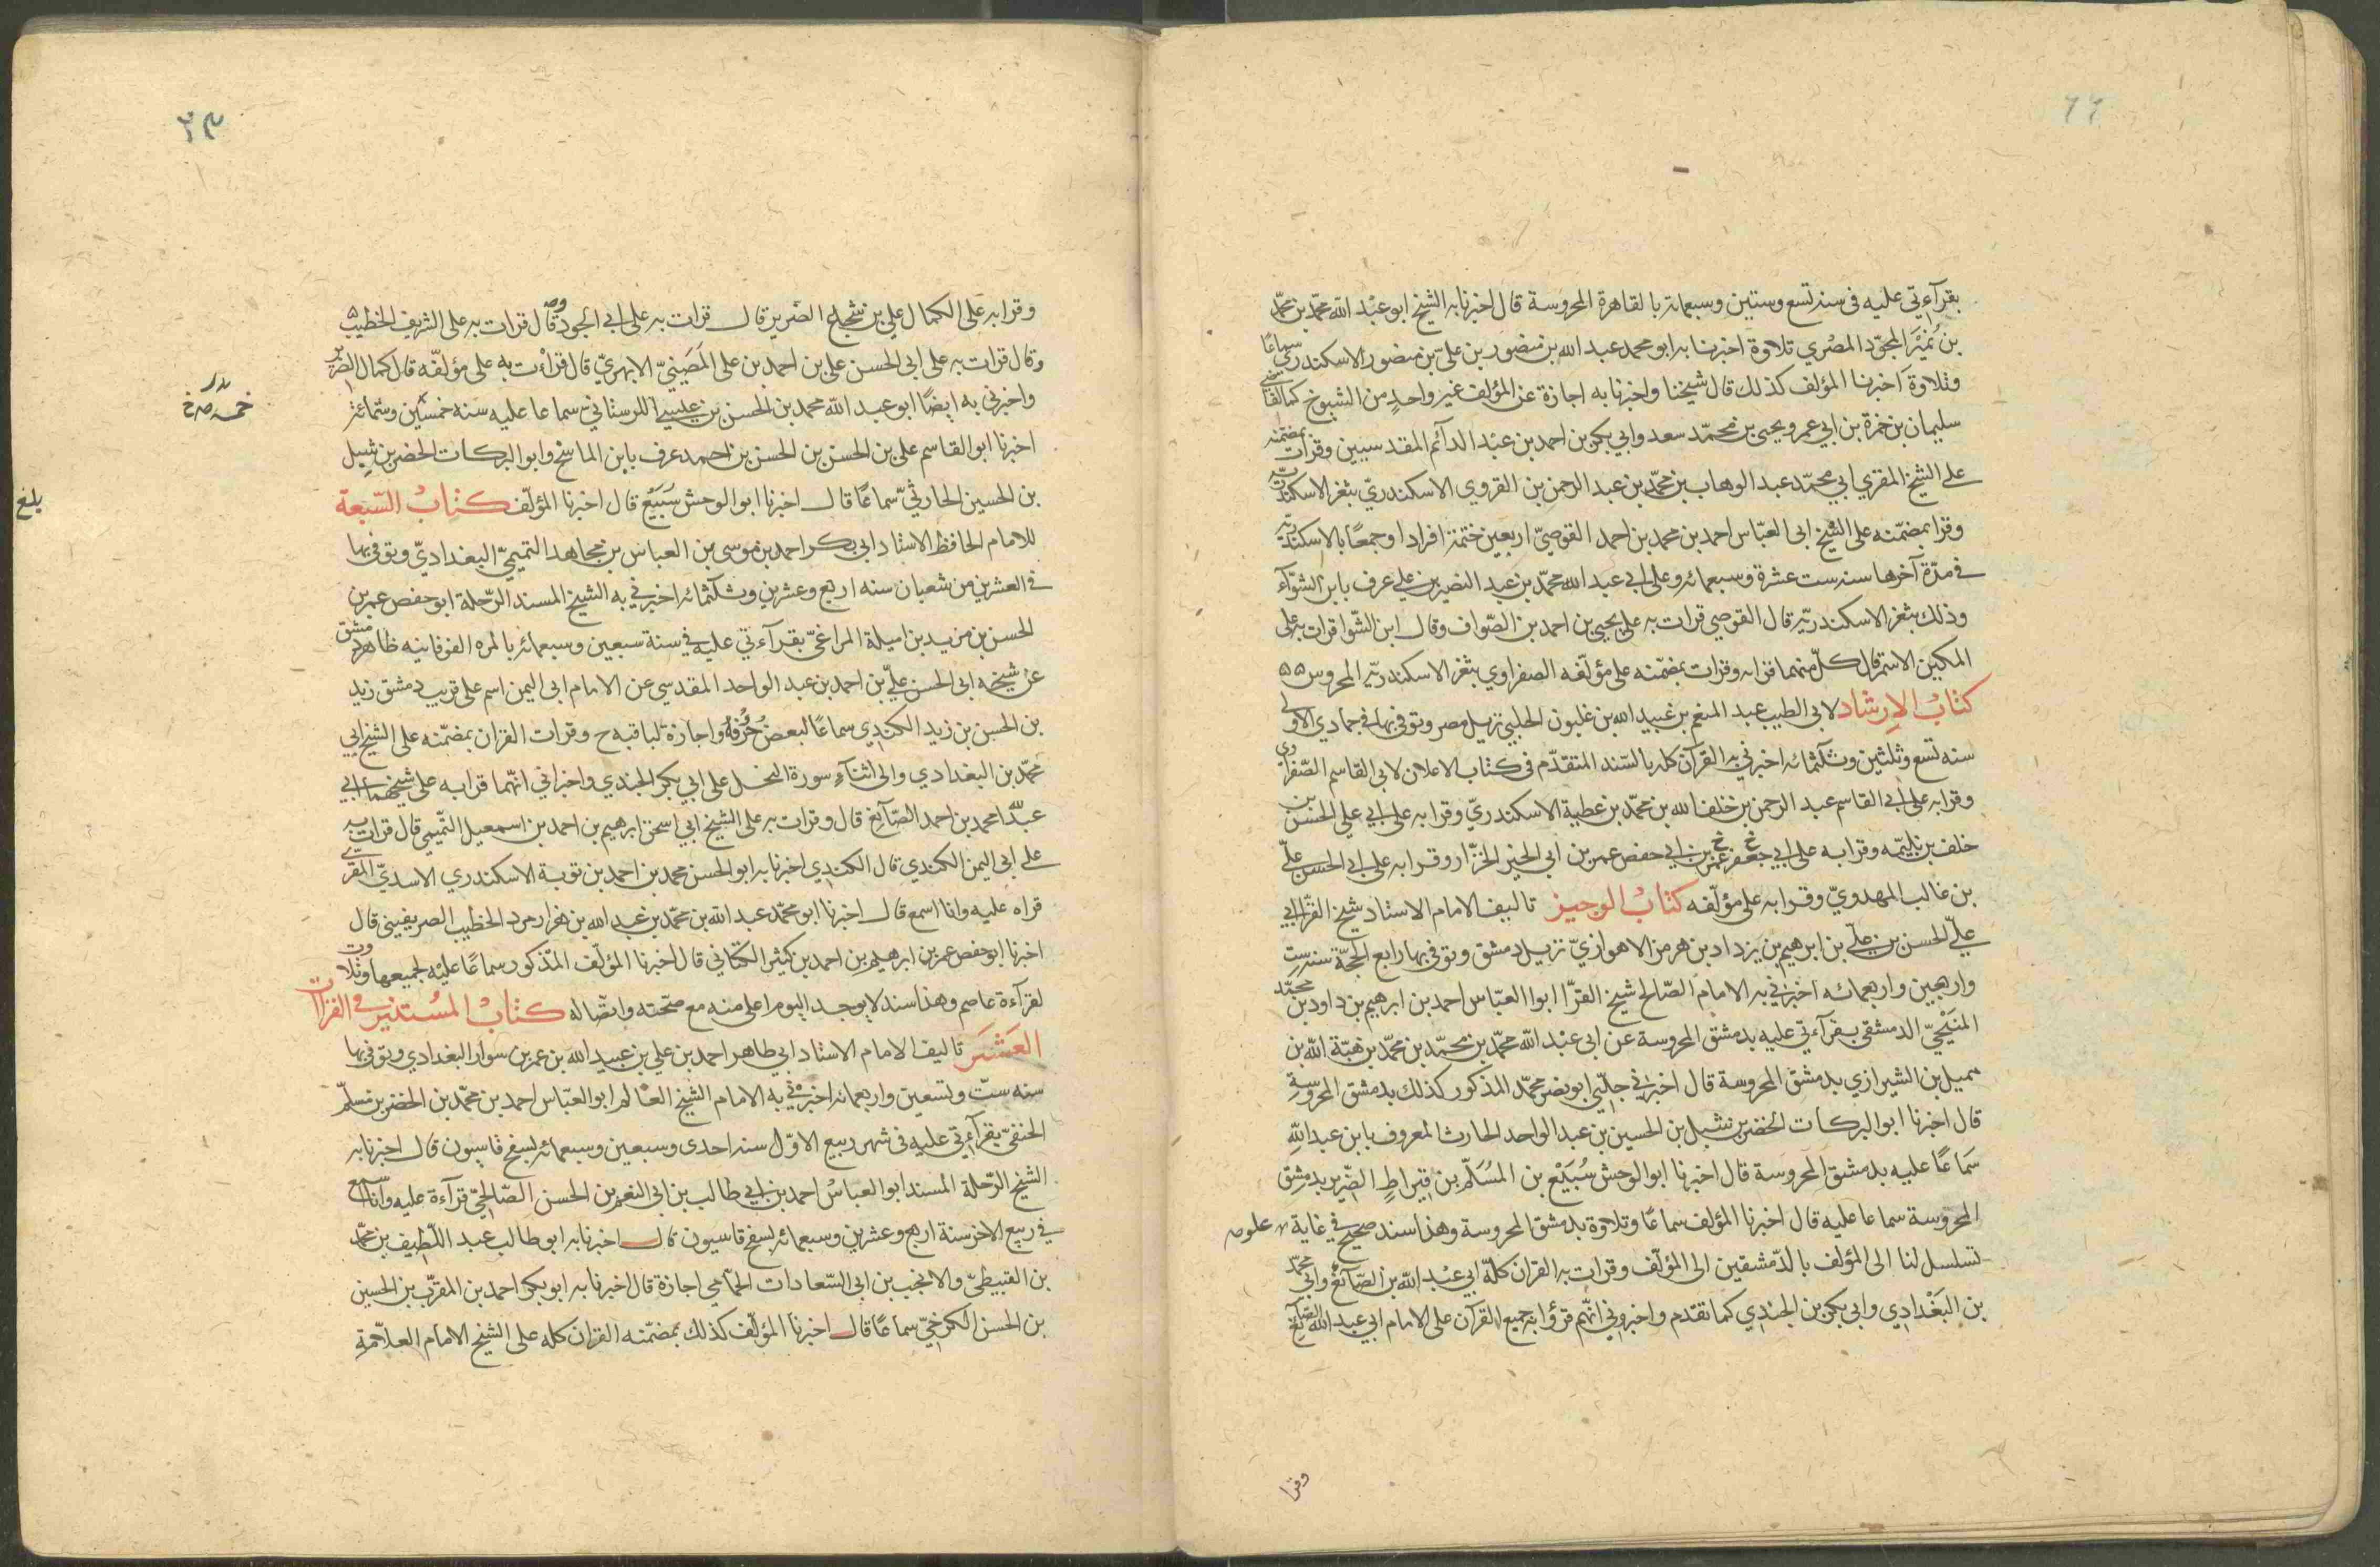 ٦٦
بقرآءتي عليه في سنه تسع وستين وسبعمائه بالقاهرة المحروسة قال اخبرنا به الشيخ ابو عبْد الله محمّد بن محمّد
بن نُمَيْر المجوّد المصْري تلاوة اخبرنا به ابو محمد عبد الله بن منصور بن عليّ بن منصور الاسكندري سماعًا
وتلاوة اخبرنا المؤلف كذلك قال شيخنا واخبرنا به اجازة عن المؤلف غير واحدٍ من الشيوخ كالقاضي
سليمان بن حمزة بن ابي عمر ويحيى بن محمّد سعد وابي بكر بن احمد بن عبْد الدآئم المقدسيين وقرات بمضمنه
على الشيخ المقري ابي محمّد عبد الوهاب بن محمّد بن عبد الرحمن بن القروي الاسكندريّ بثغر الاسكندريّه
وقرا بمضمّنه على الشيْخ ابى العبّاس احمد بن محمد بن احمد القوصيّ اربعين ختمة افرادا وجمعًا بالاسكندريّه
في مدّة آخرها سنه ست عشرة وسبعمائه وعلى ابي عبد الله محمّد بن عبد النصير بن علي عرف بابن الشوّآء
وذلك بثغر الاسكندريّه قال القوصي قرات به على يحيى بن احمد بن الصّواف وقال ابن الشّوا قرات به على
المكين الاسمر قال كلّ منهما قرا به وقرات بمضمّنه على مؤلّفه الصفراوي بثغر الاسكندريّه المحروس ۵۵
كتابُ الإرشاد لابي الطيب عبد المنعم بن عُبيد الله بن غلبون الحلبي نزيل مصر وتوفي بها في جمادي الاولى
سنه تسع وثلثين وثلثمائه اخبرني به القرآن كله بالسّند المتقدّم في كتاب الاعلان لابى القاسم الصّفراوي
وقرا به على ابي القاسم عبد الرحمن بن خلف الله بن محمّد بن عطية الاسكندريّ وقرا به على ابي علي الحسَن بن
خلف بن بليّمه وقرا به على ابي حفص عمر بن ابي الخير الخزّاز وقرا به على ابي الحسن عليّ
بن غالب المهدويّ وقرا به على مؤلّفه كتابُ الوجيز تاليف الامام الاستاد شيخ القرّا ابي
عليّ الحسن بن عليّ بن ابرهيم بن يزداد بن هرمز الاهوازيّ نزيل دمشق وتوفي بها رابع الحجّة سنه ست
واربعين واربعمائه اخبرني به الامام الصّالح شيخ القرّا ابو العبّاس احمد بن ابرهيم بن داود بن محمّد
المنبَجْيّ الدمشقى بقرآءتي عليه بدمشق المحروسة عن ابي عبْد الله محمّد بن محمّد بن محمّد بن هبة الله بن
مميل بن الشيرازي بدمشق المحروسة قال اخبرني جدّي ابو نصر محمّد المذكور كذلك بدمشق المحروسةِ
قال اخبرنا ابو البركات الخضر بن شبل بن الحسين بن عبد الواحد الحارث المعروف بابن عبد اللهِ
سَماعًا عليه بدمشق المحروسة قال اخبرنا ابو الوحش سُبَيْع بن المُسَلّم بن قيراطٍ الضّرير بدمشق
المحروسة سماعا عليه قال اخبرنا المؤلف سماعًا وتلاوة بدمشق المحروسة وهذا سند صحيح في غاية علوه
تسلسل لنا الى المؤلف بالدّمشقين الى المؤلّف وقرات به القران كلّه ابي عبْد الله بن الصّآئغ وابي محمّد
بن البَغْدادي وابي بكر بن الجندي كما تقدّم واخبروني انّهم قرؤا به جميع القرآن على الامام ابي عبد الله الصّآئغ
وقرا
٢٣
وقرا به على الكمال علي بن شجاع الضرير قال قرات به على ابي الجود قال قرات به على الشريف الخطيب
وقال قرات به على ابى الحسن علي بن احمد بن على المَصّينيّ الابهريّ قال قراءت به على مؤلفّه قال كمال الضرير
واخبرني به ايضًا ابو عبد الله محمد بن الحسن بن عيسى اللرستاني سماعا عليه سنه خمسين وستمائه
اخبرنا ابو القاسم علي بن الحسن بن الحسن بن احمد عرف بابن الماسح وابو البركات الخضر بن شبل
بن الحسين الحارثيّ سماعًا قال اخبرنا ابو الوحش سَبَيْع قال اخبرنا المؤلّف كتابُ السّبعة
بلغ
للامام الحافظ الاستاد ابى بكر احمد بن موسى بن العباس بن مجاهد التميميّ البغداديّ وتوفي بها
في العشرين من شعبان سنه اربع وعشرين وثلثمائه اخبرني به الشيخ المسند الرّحلة ابو حفص عمر بن
الحسن بن مزيد بن اميلة المراغيّ بقرآءتي عليه في سنة سبعين وسبعمائه بالمره الفوقانيه ظاهر دمشق
عن شيخه ابى الحسن عليّ بن احمد بن عبد الواحد المقدسي عن الامام ابى اليمن اسم على قريب دمشق زيد
بن الحسن بن زيد الكندي سماعًا لبعض حُرُفهُ واجازة لباقيه ح وقرات القران بمضمّنه على الشيخ ابي
محمّد بن البغدادي والى اثنآءِ سورة النحل على ابي بكر الجندي واخبراني انّهما قرا به على شيخهما ابي
عبد الله محمد بن احمد الصّآئغ قال وقرات به على الشيخ ابي اسحق ابرهيم بن احمد بن اسمعيل التّميمي قال قرات به
على ابى اليمن الكندي قال الكندي اخبرنا به ابو الحسن محمد بن احمد بن توبة الاسكندري الاسديّ المقرّي
قراه عليه وانا اسمع قال اخبرنا ابو محمّد عبد الله بن محمّد بن عبد الله بن هزارمرد الخطيب الصريفيني قال
اخبرنا ابو حفص عمر بن ابرهيم بن احمد بن كثير الكتاني قال اخبرنا المؤلّف المذكور سماعًا عليه لجميعها وتلاوت
لقرآءة عاصم وهذا سند لا يوجد اليوم اعلى منه مع صحّته واتصّاله كتابُ المُستنير في القراات
العَشَر تاليف الامام الاستاد ابي طاهر احمد بن علي بن عبيد الله بن عمر بن سوار البغدادي وتوفي بها
سنه ستّ وتسعين واربعمائه اخبرني به الامام الشيخ العالم ابو العبّاس احمد بن محمّد بن الخضر بن مسلّم
الحنفيّ بقرآءتي عليه في شهر ربيع الاوّل سنه احدى وسبعين وسبعمائه بسفح قاسيون قال اخبرنا به
الشيخ الرّحلة المسند ابو العباسُ احمد بن ابي طالب بن ابى النعم بن الحسن الصّالحيّ قرآءة عليه وانا اسمع
في ربيع الاخر سنة اربع وعشرين وسبعمائه بسفح قاسيون قال اخبرنا به ابو طالب عبد اللّطيف بن محمّد
بن القبيطيّ والانجب بن ابى السّعادات الحمّامي اجازة قال اخبرنا به ابو بكر احمد بن المقرّب بن الحسين
بن الحسن الكرخيّ سماعًا قال اخبرنا المؤلّف كذلك بمضمّنه القران كله على الشيخ الامام العلاّمةِ